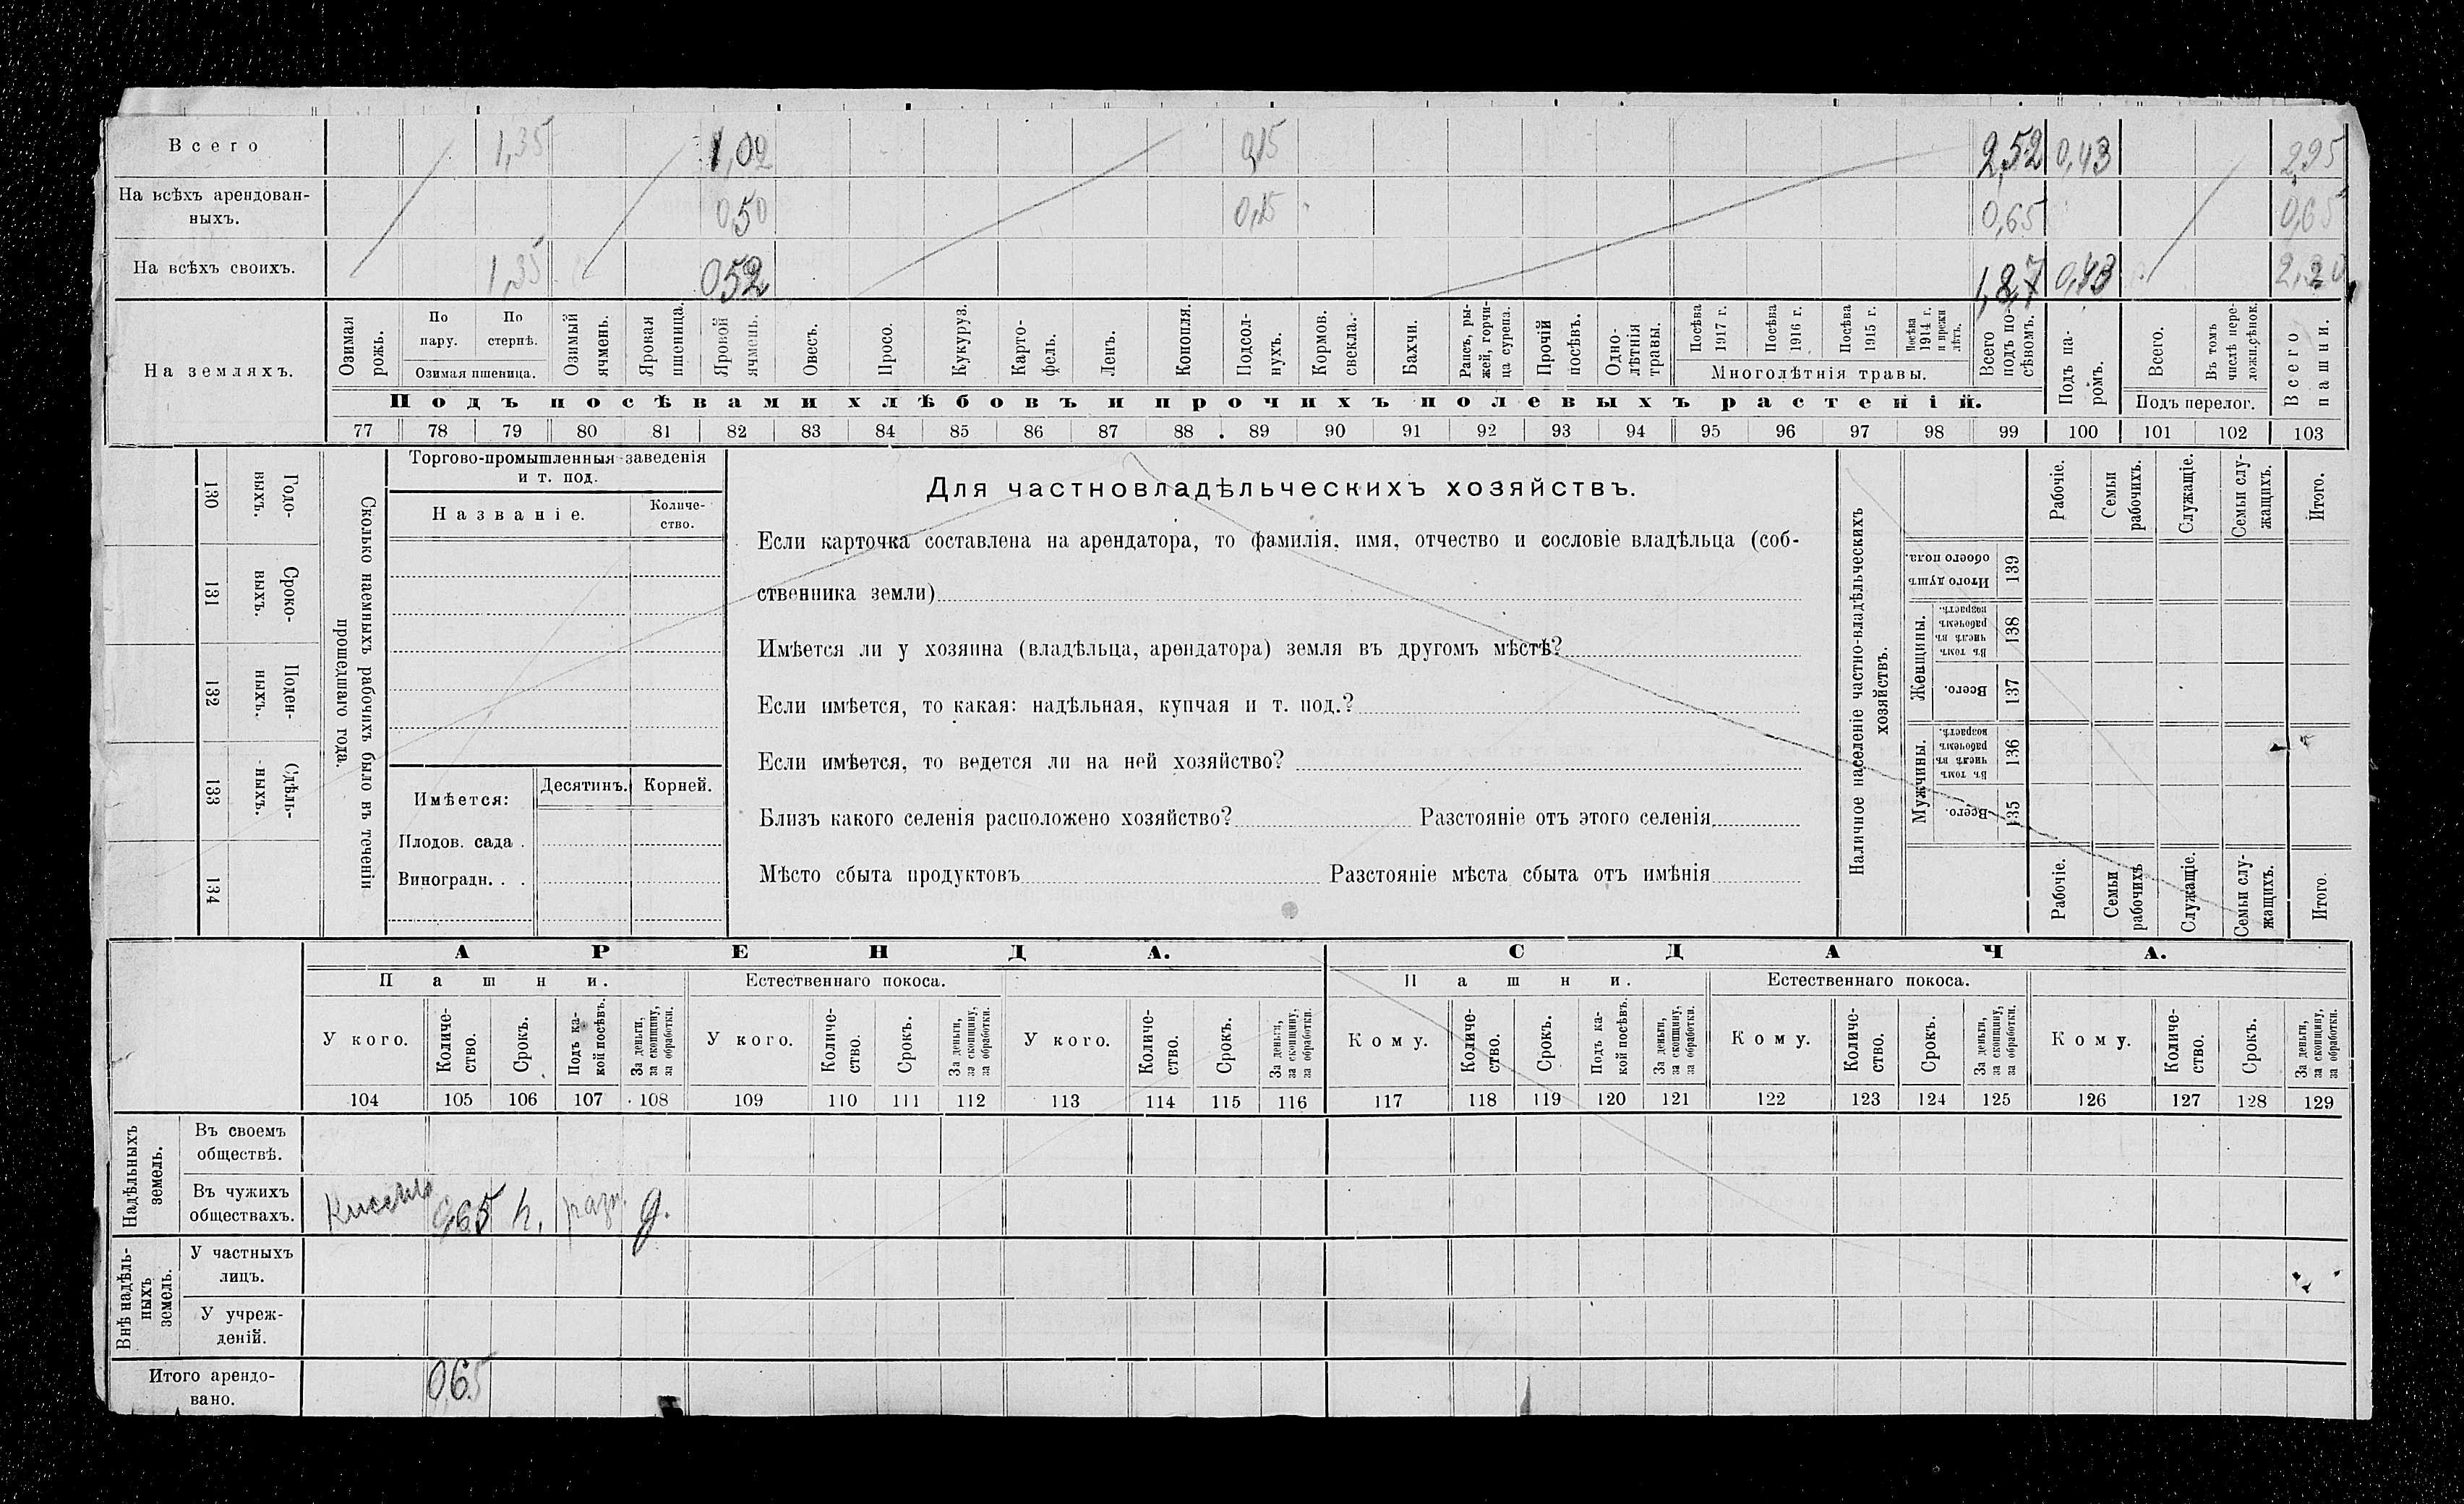 Всего 1,35 1,02 0,15 2,52 0,43 2,95
На всѣхъ арендован-
ныхъ. 0,50 0,15 0,65 0,65
На всѣхъ своихъ. 1,35 0,52 1,87 0,43
На земляхъ.
Озимая рожь.
По пару.
По стернѣ.
Озимая пшеница.
Озимый ячмень.
Яровая пшеница.
Яровой ячмень.
Овесъ.
Просо.
Кукуруз.
Карто-
фель.
Ленъ.
Конопля.
Подсол-
нухъ.
Кормов.
свекла.
Бахчи.
Рапсъ, ры-
жей, горчи-
ца сурепа.
Прочій посѣвъ.
Одно-
лѣтнія травы.
Посѣва 1917 г.
Посѣва 1916 г.
Посѣва 1915 г.
Посѣва 1914 г. и прежн лѣтъ.
Многолѣтнія травы.
Всего подъ по-
сѣвомъ.
Подъ па-
ромъ.
Всего.
Въ томъ числѣ пере-
Подъ перелог.
Всего пашни.
Подъ посѣвами хлѣбовъ и прочихъ полевыхъ растеній.
77 78 79 80 81 82 83 84 85 86 87 88 89 90 91 92 93 94 95 96 97 98 99 100 101 102 103
Годо-
выхъ. 130
Сроко-
выхъ. 131
Поден-
ныхъ. 132
Сдѣль-
ныхъ. 133
134
Сколько наемныхъ рабочихъ было въ теченіи
прошедшаго года.
Торгово-промышленныя заведенія
и т. под.
Названіе.
Количе-
ство.
Имѣется: Десятинъ. Корней.
Плодов. сада .
Виноградн. . .
Для частновладѣльческихъ хозяйствъ.
Если карточка составлена на арендатора, то фамилія, имя, отчество и сословіе владѣльца (соб-
ственника земли)
Имѣется ли у хозяина (владѣльца, арендатора) земля въ другомъ мѣстѣ?
Если имѣется, то какая: надѣльная, купчая и т. под.?
Если имѣется, то ведется ли на ней хозяйство?
Близъ какого селенія расположено хозяйство? Разстояніе отъ этого селенія
Мѣсто сбыта продуктовъ Разстояніе мѣста сбыта отъ имѣнія
Наличное населеніе частно-владѣльческихъ
хозяйствъ.
Рабочіе.
Семьи рабочихъ.
Служащіе.
Семьи слу-
жащихъ.
Итого.
Итого душъ обоего пола. 139
Женщины.
Въ томъ числѣ въ рабочемъ возрастѣ. 138
Всего. 137
Мужчины.
Въ томъ числѣ въ рабочемъ возрастѣ. 136
Всего. 135
Рабочіе.
Семьи рабочихъ
Служащіе.
Семьи слу-
жащихъ.
Итого.
АРЕНДА. СДАЧА.
Пашни. Естественнаго покоса. Пашни. Естественнаго покоса.
У кого.
Количе-
ство.
Срокъ.
Подъ ка-
кой посѣвъ.
За деньги,
за скопщину,
за обработки.
У кого.
Количе-
ство.
Срокъ.
За деньги,
за скопщину,
за обработки.
У кого.
Количе-
ство.
Срокъ.
За деньги,
за скопщину,
за обработки.
Кому.
Количе-
ство.
Срокъ.
Подъ ка-
кой посѣвъ.
За деньги,
за скопщину,
за обработки.
Кому.
Количе-
ство.
Срокъ.
За деньги,
за скопщину,
за обработки.
Кому.
Количе-
ство.
Срокъ.
За деньги,
за скопщину,
за обработки.
104 105 106 107 108 109 110 111 112 113 114 115 116 117 118 119 120 121 122 123 124 125 126 127 128 129
Надѣльныхъ
земель.
Въ своемъ
обществѣ.
Въ чужихъ
обществахъ. 0,65 разн. д.
Внѣ надѣль-
ныхъ
земель.
У частныхъ
лицъ.
У учреж-
деній.
Итого арендо-
вано. 0,65